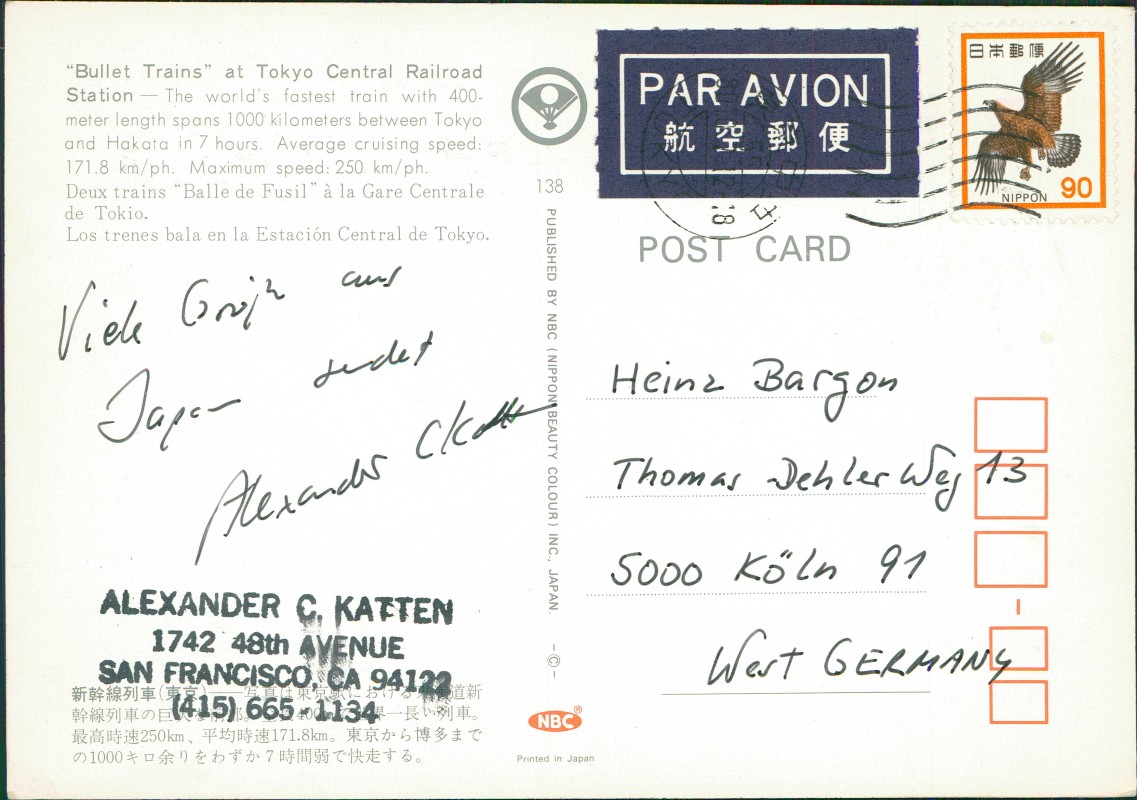 “Bullet Trains” at Tokyo Central Railroad
Station — The world's fastest train with 400-
meter length spans 1000 kilometers between Tokyo
and Hakata in 7 hours. Average cruising speed:
171.8 km/ph. Maximum speed: 250 km/ph.
Deux trains “Balle de Fusil” à la Gare Centrale
de Tokio.
Los trenes bala en la Estación Central de Tokyo.
Viele Grüße aus
Japan sendet
Alexander C Katten
ALEXANDER C. KATTEN
1742 48th AVENUE
SAN FRANCISCO, CA 94122
(415) 665-1134
新幹線列車(東京)——写真は東京駅における 道新
幹線列車の巨大な 部。 400 界一長い列車。
最高時速250km、平均時速171.8km。東京から博多まで
の1000キロ余りをわずか7時間弱で快走する。
138
PUBLISHED BY NBC (NIPPON BEAUTY COLOUR) INC., JAPAN. -©-
NBC®
Printed in Japan
PAR AVION
航空郵便
日本郵便
NIPPON 90
POST CARD
Heinz Bargon
Thomas Dehler Weg 13
5000 Köln 91
West GERMANY